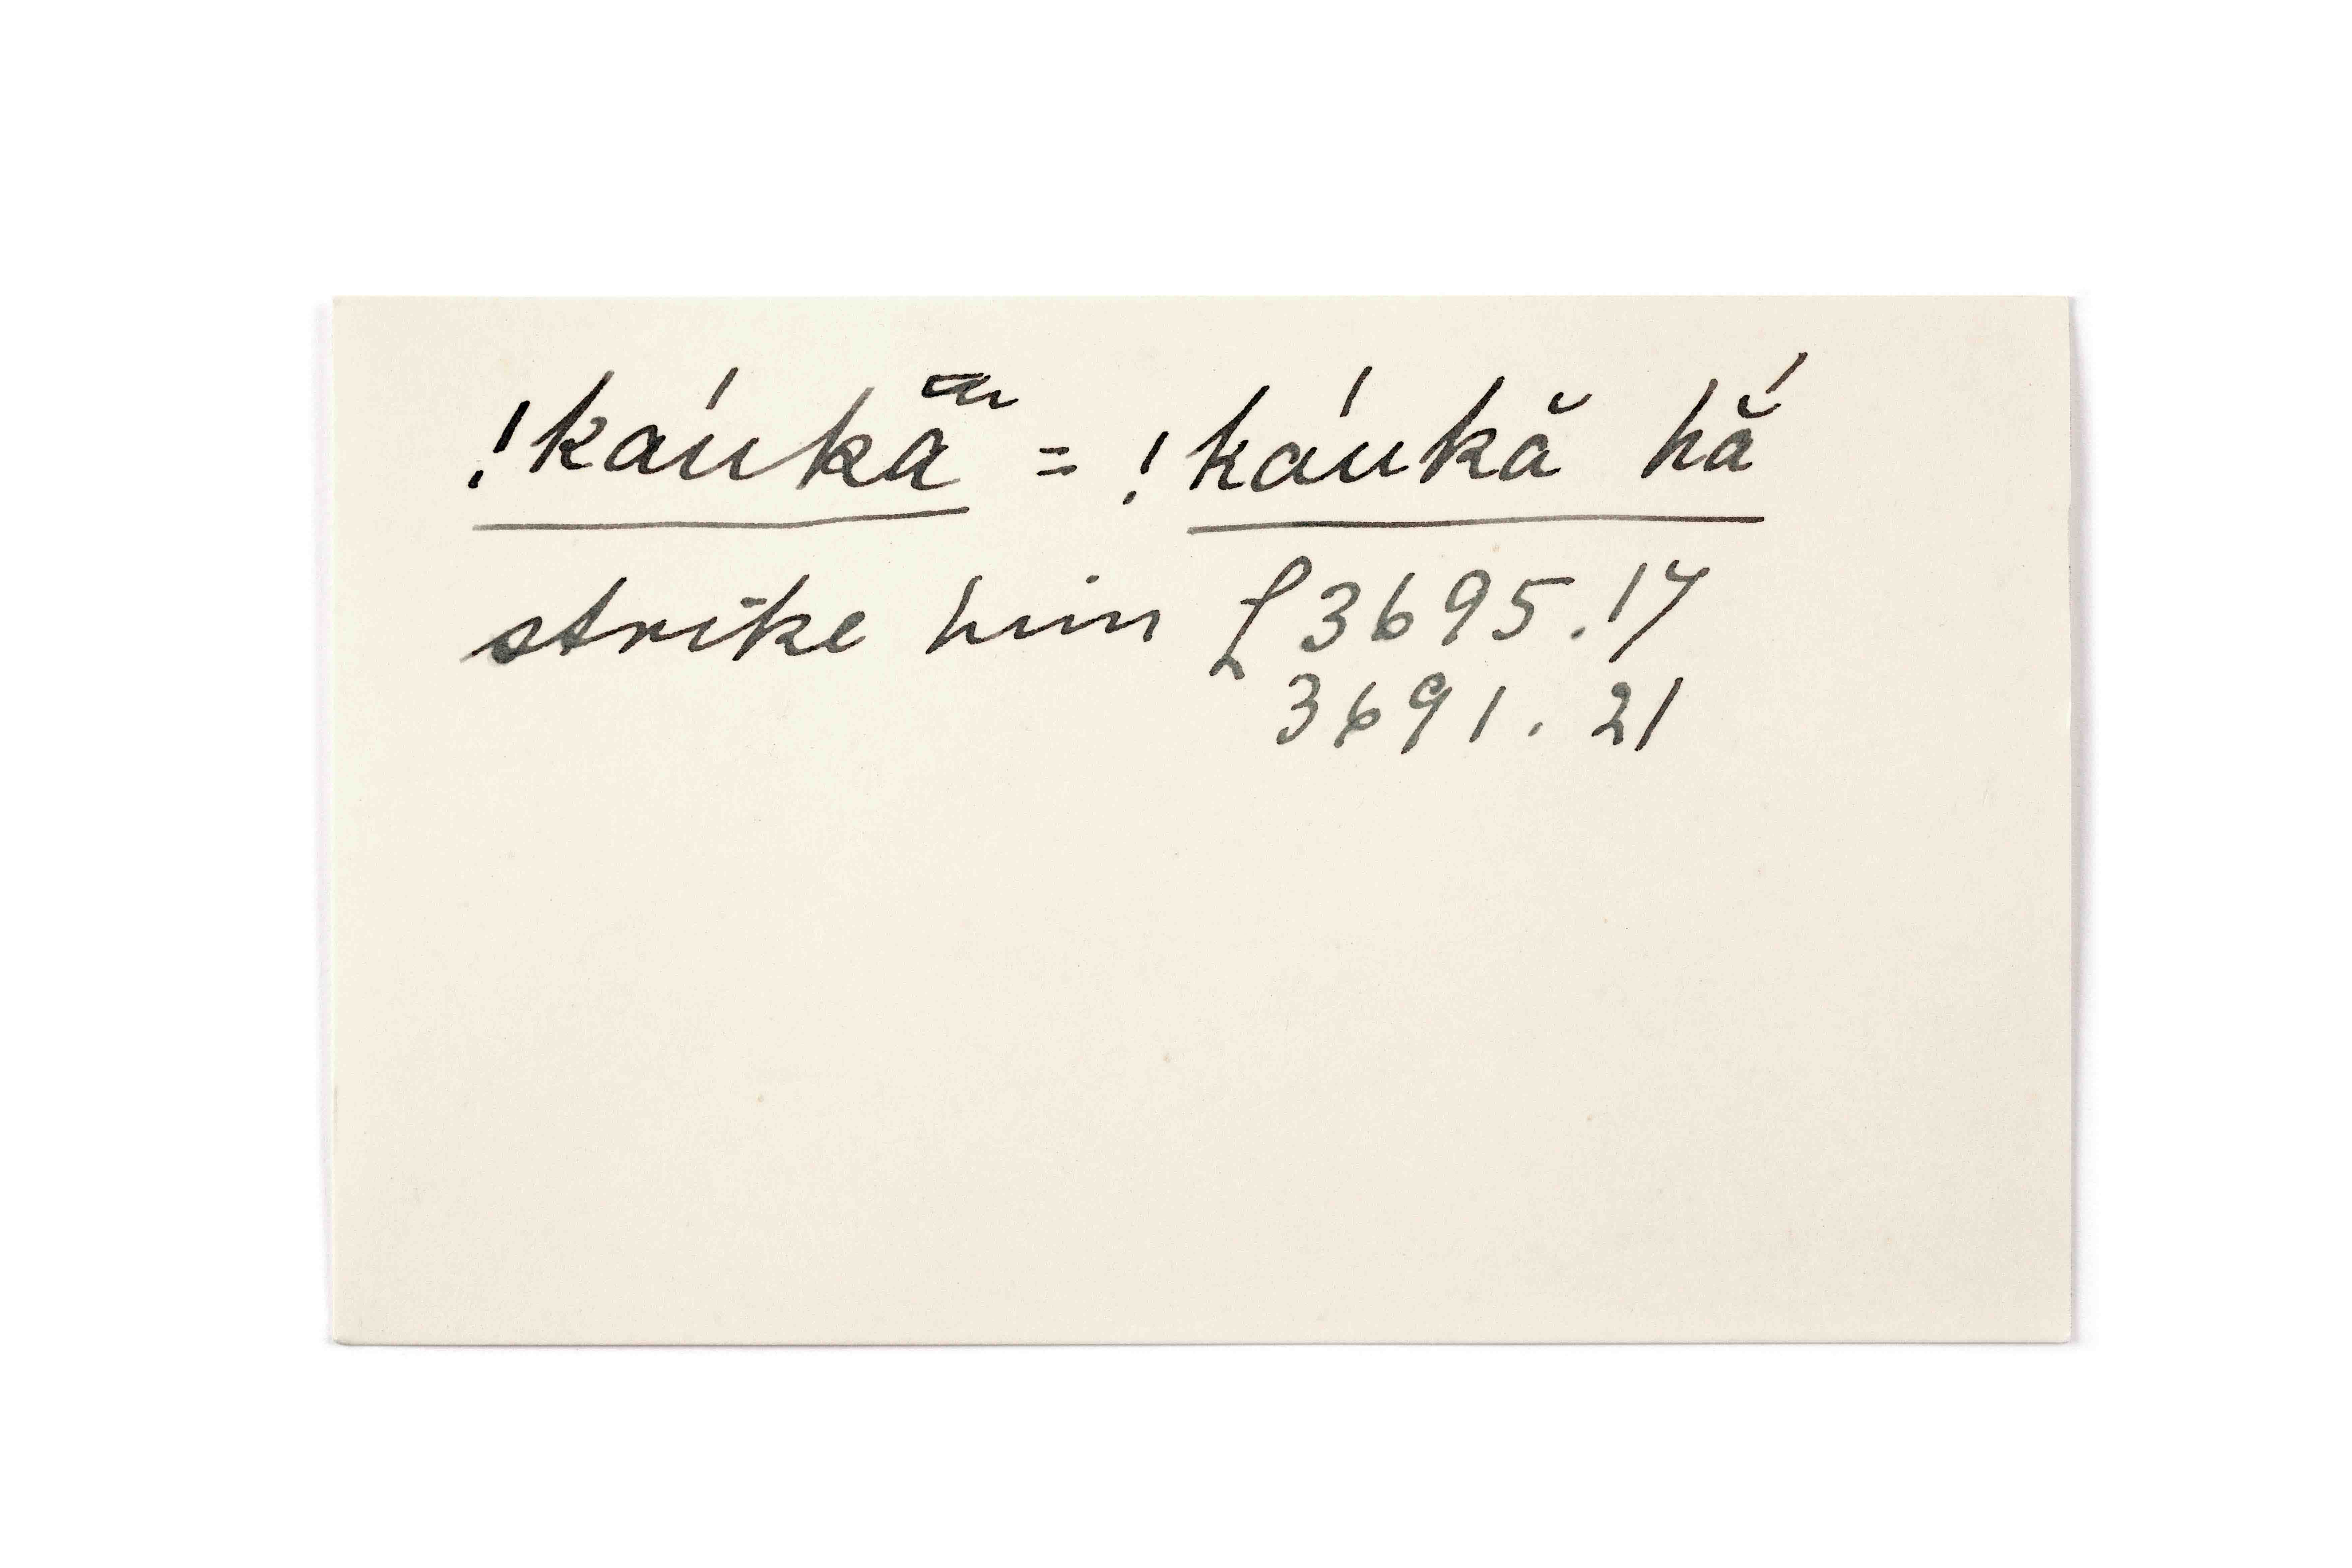 !káukā̆ = !káukă hắ
strike him L 3695.17
3691.21